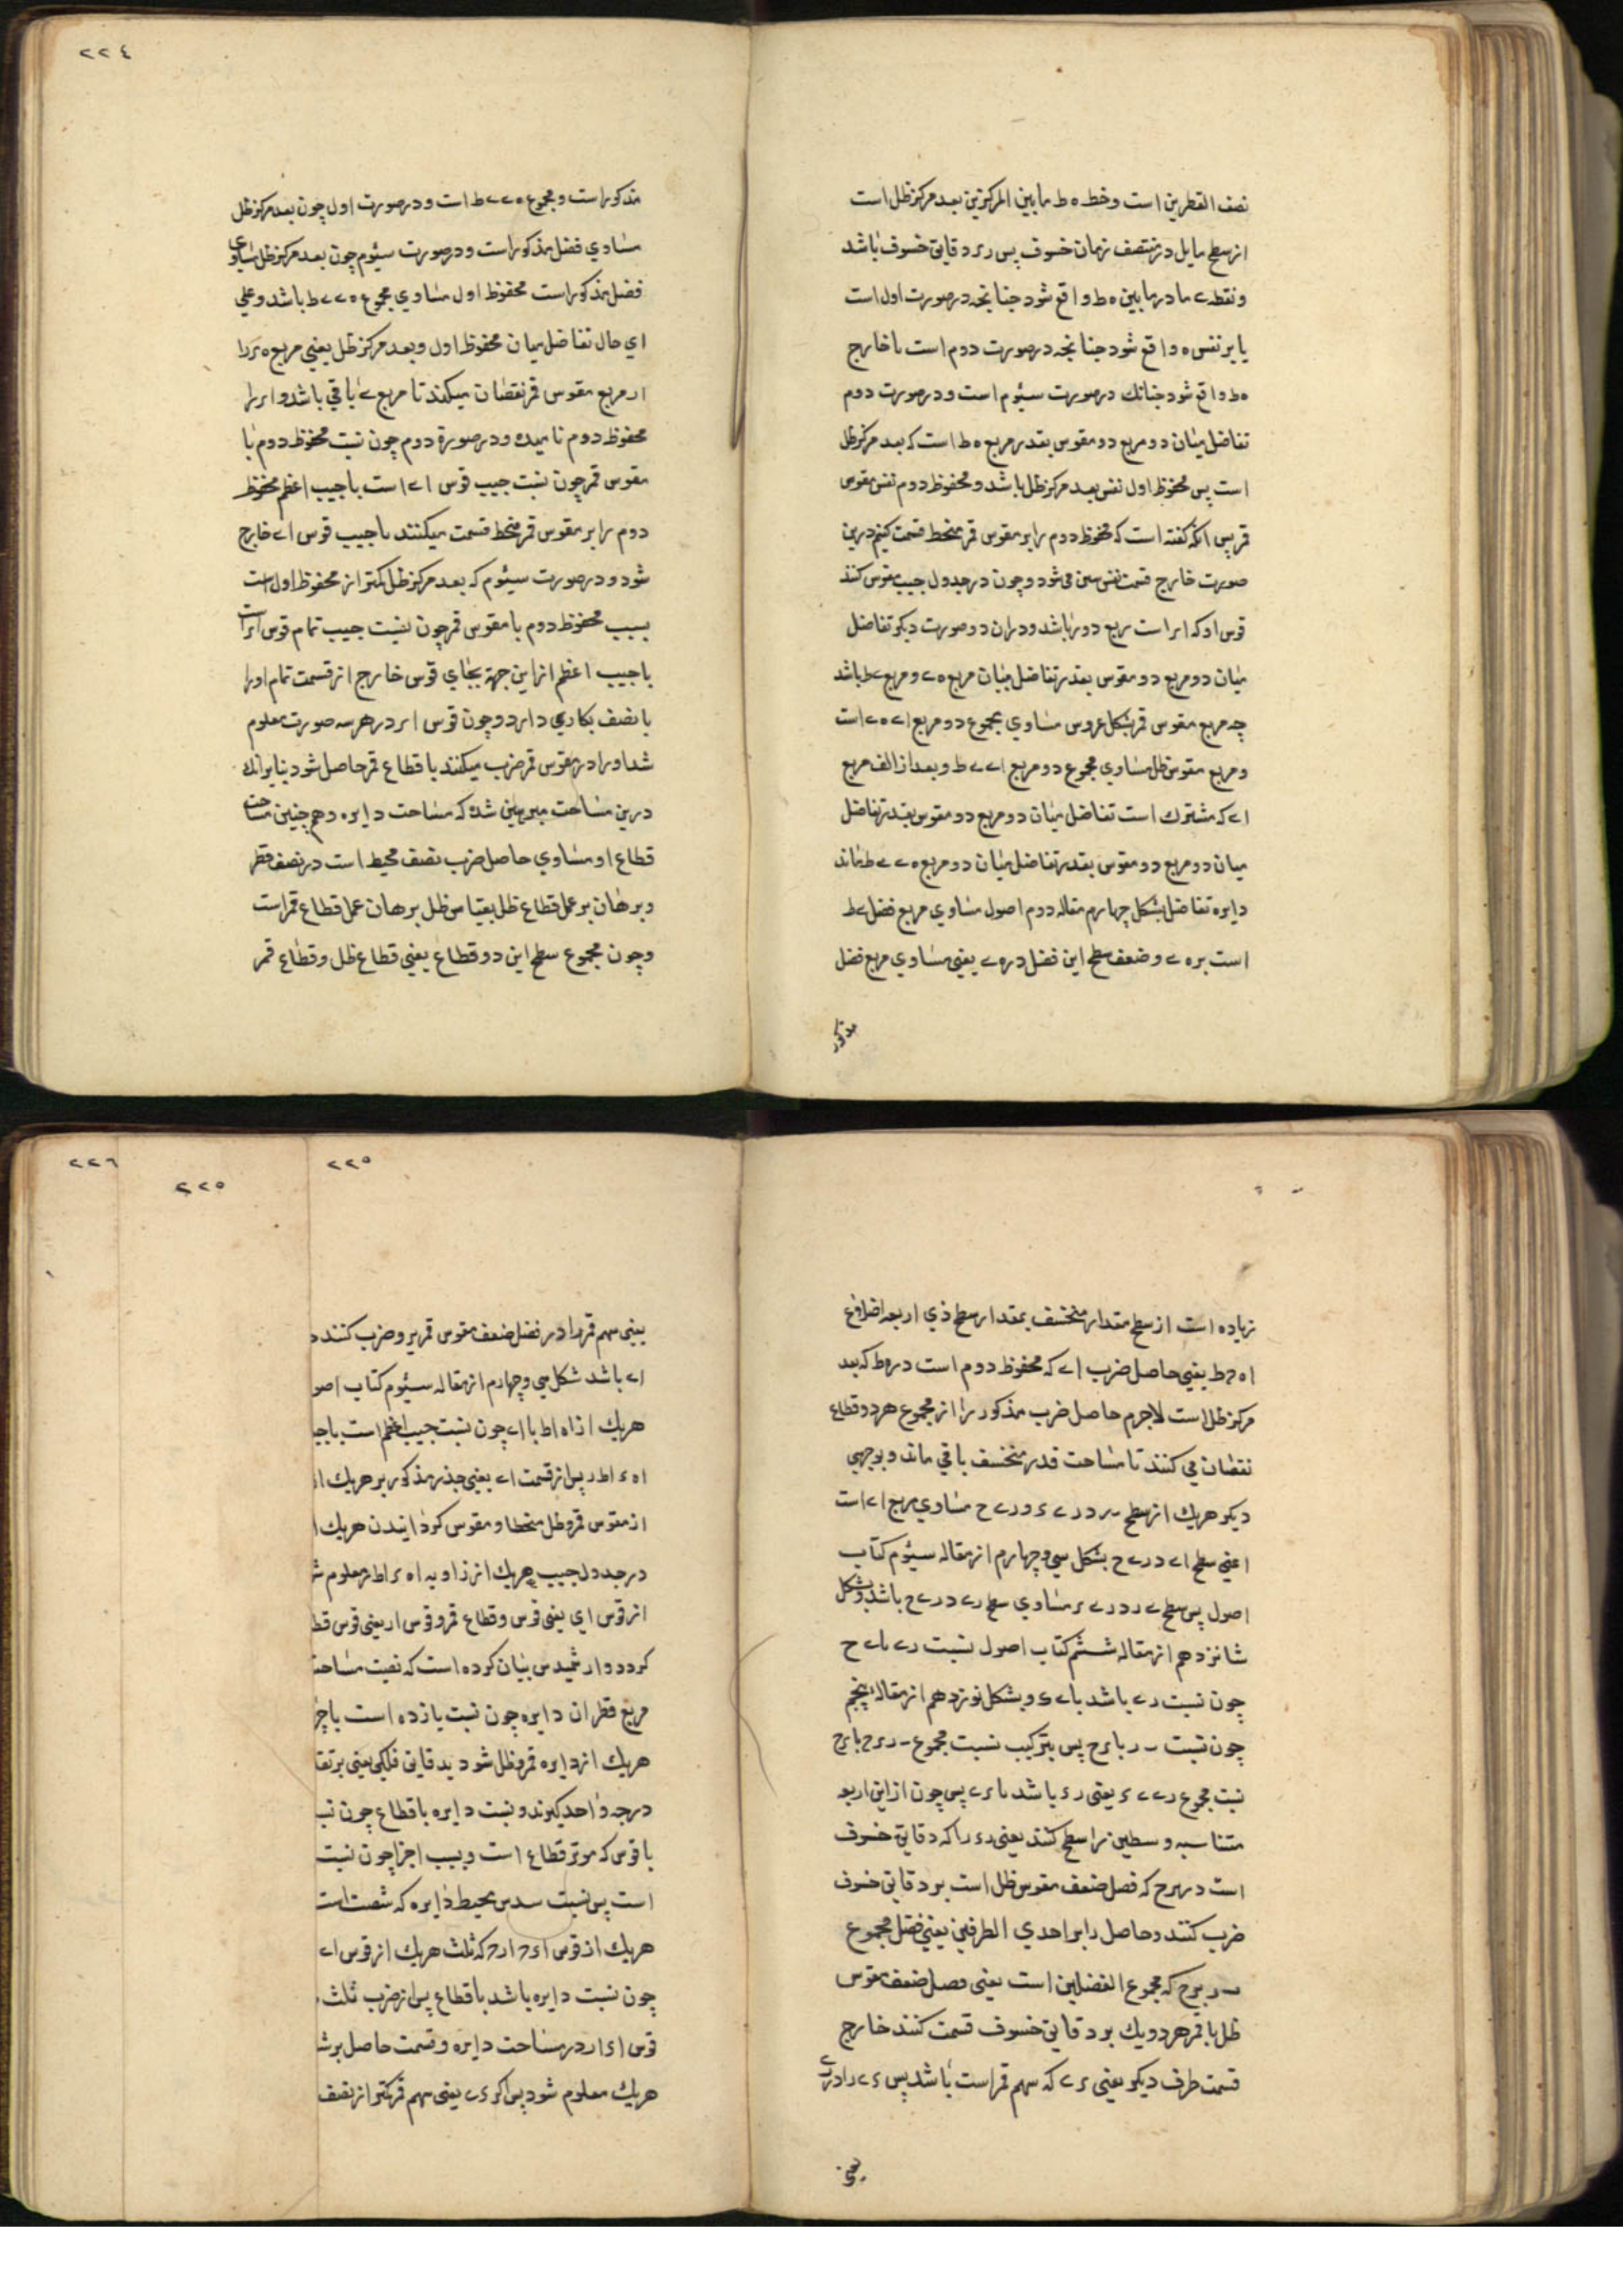 نصف القطرین است وخط ه ط مابین المرکزین بعد مرکز ظل است
از سطح مایل در منتصف زمان خسوف پس رء دقایق خسوف باشد
ونقطه ے ما در مابین ه ط واقع شود جنانجه در صورت اول است
یا بر نفس ه واقع شود جنانجه در صورت دوم است یا خارج
ه ط واقع شود جنانك در صورت سیئوم است ودر صورت دوم
تفاضل میان دو مربع دو مقوس بقدر مربع ه ط است که بعد مرکز ظل
است پس محفوظ اول نفس بعد مرکز ظل باشد ومحفوظ دوم نفس مقوس
قمر پس انکه کفته است که محفوظ دوم را بر مقوس قمر منحط قسمت کنیم درین
صورت خارج قسمت نفس ستین می شود وچون در جدول جیب مقوس کنند
قوس او که ار است ربع دور باشد ودران دو صورت دیکر تفاضل
میان دو مربع دو مقوس بقدر تفاضل میان مربع ه ے ومربع ے ط باشد
چه مربع مقوس قمر بشکل عروس مساوي مجموع دو مربع اے ه ے است
ومربع مقوس ظل مساوي مجموع دو مربع اے ے ط وبعد از الف مربع
اے که مشترك است تفاضل میان دو مربع دو مقوس بقدر تفاضل
میان دو مربع دو مقوس بقدر تفاضل میان دو مربع ه ے ے ط ماند
دایره تفاضل بشکل چهارم مقاله دوم اصول مساوي مربع فضل ے ط
است بر ه ے وضعف سطح این فضل در ه ے یعنی مساوي مربع فضل
مذکور
٢٢٤
مذکور است ومجموع ه ے ے ط است ودر صورت اول چون بعد مرکز ظل
مساوي فضل مذکور است ودر صورت سیئوم چون بعد مرکز ظل مساوي
فضل مذکور است محفوظ اول مساوي مجموع ه ے ے ط باشد وعلي
اي حال تفاضل میان محفوظ اول وبعد مرکز ظل یعنی مربع ه ے را
از مربع مقوس قمر نقصان میکنند تا مربع ے ا باقي باشد واورا
محفوظ دوم نامیده ودر صورة دوم چون نسبت محفوظ دوم با
مقوس قمر چون نسبت جیب قوس اے است باجیب اعظم محفوظ
دوم را بر مقوس قمر منحط قسمت میکنند تا جیب قوس اے خارج
شود ودر صورت سیئوم که بعد مرکز ظل کمتر از محفوظ اول است
بسبب محفوظ دوم با مقوس قمر چون نسبت جیب تمام قوس ار است
باجیب اعظم از این جهة بجاي قوس خارج از قسمت تمام اورا
با نصف بکار مي دارد وچون قوس ار در هر سه صورت معلوم
شد اورا در مقوس قمر ضرب میکنند با قطاع قمر حاصل شود بنابرانك
درین مساحت مبرهن شده که مساحت دایره وهم چنین مساحت
قطاع او مساوي حاصل ضرب نصف محیط است در نصف قطر
وبرهان بر عمل قطاع ظل بقیاس ظل برهان عمل قطاع قمر است
وچون مجموع سطح این دو قطاع یعنی قطاع ظل وقطاع قمر
زیاده است از سطح مقدار منخسف بمقدار سطح ذي اربعه اضلاع
ا ه ح ط یعنی حاصل ضرب اے که محفوظ دوم است در ه ط که بعد
مرکز ظل است لاجرم حاصل ضرب مذکور را از مجموع هر دو قطاع
نقصان مي کنند تا مساحت قدر منخسف باقي ماند وبوجهي
دیکر هریك از سطح ر در ے ء ور ے ح مساوي مربع اے است
اعني سطح اے در ے ح بشکل سي وچهارم از مقاله سیئوم کتاب
اصول پس سطح ے ر در ے ء مساوي سطح ر ے در ے ح باشد وبشکل
شانزدهم از مقاله ششم کتاب اصول نسبت ر ے با ے ح
چون نسبت ر ے باشد با ے ء وبشکل نوزدهم از مقاله پنجم
چون نسبت ر با ء ح پس بترکیب نسبت مجموع ر ء ح با ء ح
نسبت مجموع ر ے ے ء یعنی ر ء باشد با ء ے پس چون از این اربعه
متناسبه وسطین را سطح کنند یعنی ر ء را که دقایق خسوف
است در ء ح که فصل ضعف مقوس ظل است بر دقایق خسوف
ضرب کنند وحاصل را بر احدي الطرفین یعنی فضل مجموع
ر بر ح که مجموع الفضلین است یعنی فصل ضعف مقوس
ظل با قمر هر دو یك بر دقایق خسوف قسمت کنند خارج
قسمت طرف دیکر یعنی ء ے که سهم قمر است باشد پس ء ے را در ے
یعنی
٢٢٦
٢٢٥
٢٢٥
یعنی سهم قمر را در فضل ضعف مقوس قمر بر وضرب کنند
اے باشد شکل سي وچهارم از مقاله سیئوم کتاب اصو
هریك از ا ه ا ط با اے چون نسبت جیب اعظم است باجیـ
ا ه ء ا ط ر پس از قسمت اے یعنی جذر مذکور بر هریك ا
از مقوس قمر وظل منحطا ومقوس کردانیدن هریك ا
در جدول جیب هریك از زاویه ا ه ء ا ط ر معلوم شـ
از قوس اي یعنی قوس وقطاع قمر وقوس ار یعنی قوس قطـ
کردد وارشمیدس بیان کرده است که نصیت مساحت
مربع قطر ان دایره چون نسبت یازده است باچر
هریك از دایره قمر وظل شود بدقایق فلکي یعنی بر تقـ
درجه واحد کیرند ونسبت دایره باقطاع چون نسـ
باقوس که موتر قطاع است وبسبب اجزا چون نسبت
است پس نسبت سدس محیط دایره که شصت است
هریك از قوس ا ء ح ا ر ح که ثلث هریك از قوس اے
چون نسبت دایره باشد باقطاع پس از ضرب ثلث
قوس ا ء ا ر در مساحت دایره وقسمت حاصل بر شـ
هریك معلوم شود پس اکر ء ے یعنی سهم قمر کمتر از نصف